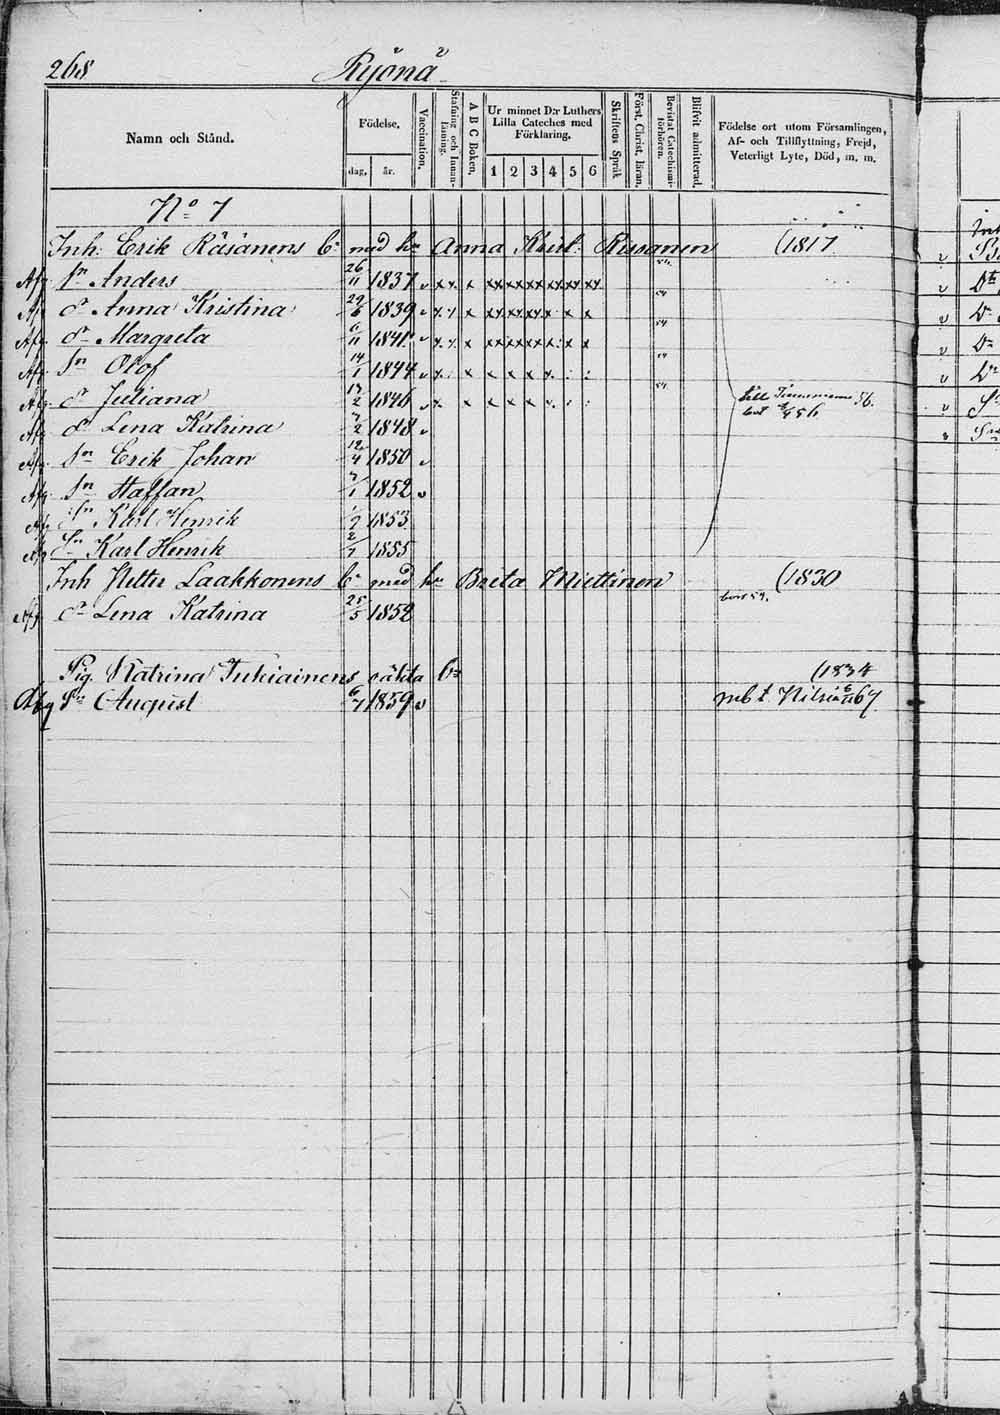 268 Ryönä
Namn och Stånd.
Födelse.
dag. år.
Vaccination.
Stafning och Innan-läsning.
A B C Boken.
Ur minnet D:r Luthers Lilla Cateches med Förklaring.
1 2 3 4 5 6
Skriftens Språk
Först. Christ. läran.
Bevistat Catechismi-förhören.
Blifvit admitterad.
Födelse ort utom Församlingen, Af- och Tillflyttning, Frejd, Veterligt Lyte, Död, m. m.
No 7
Inh: Erik Räsänens b:n med h:u Anna Krist: Rissanen (1817
Afg Sn Anders 26/11 1837 v x x x xx xx xx xx xx xx
Afg dr Anna Kristina 29/6 1839
Afg dr Margreta 6/11 1841
Afg Sn Olof 14/1 1844
Afg dr Juliana 13/2 1846 till 56.
Afg dr Lena Katrina 7/2 1848 v
Afg Sn Erik Johan 12/4 1850 v
Afg Sn Staffan 7/1 1852 v
Afg Sn Karl Henrik 1853
Afg Sn Karl Henrik 2/7 1855
Inh Petter Laakkonens b:n med h:u Brita Miettinen (1830
bort 59.
Afg dr Lena Katrina 25/5 1852
Pig. Katrina Jukiainens oäkta b:n (1834
Afg Sn August 6/7 1859 v mb t. Nilsiä 6/11 67